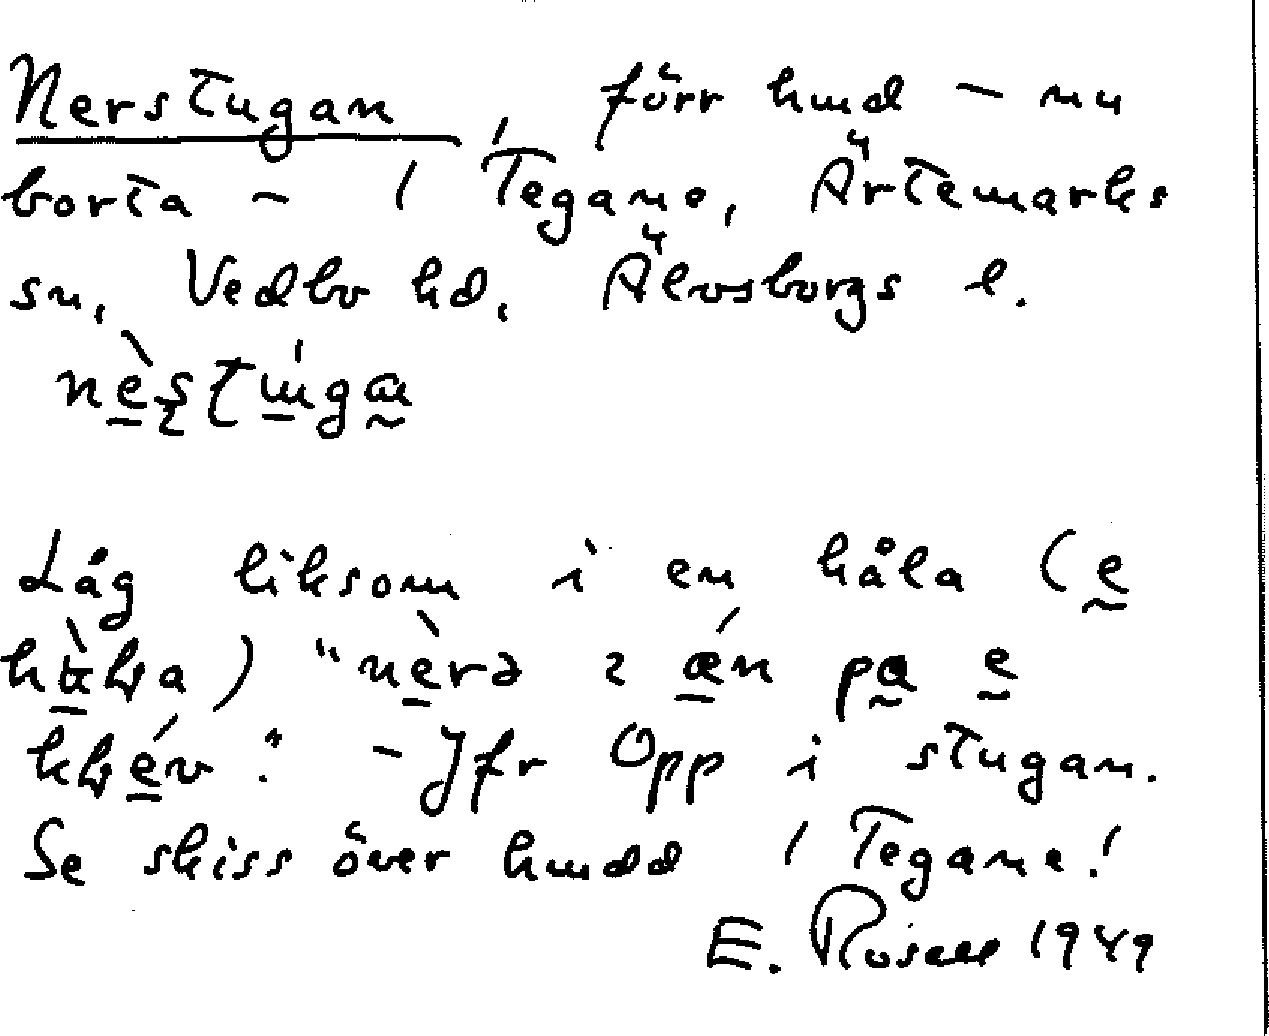 Nerstugan, förr hmd – nu
borta – / Tegane, Ärtemarks
sn, Vedbo hd, Älvsborgs l.
Låg liksom i en håla (e
"nèrə án pa e
– Jfr Opp i stugan.
Se skiss över hmdd / Tegane!
E. Rosell 1949